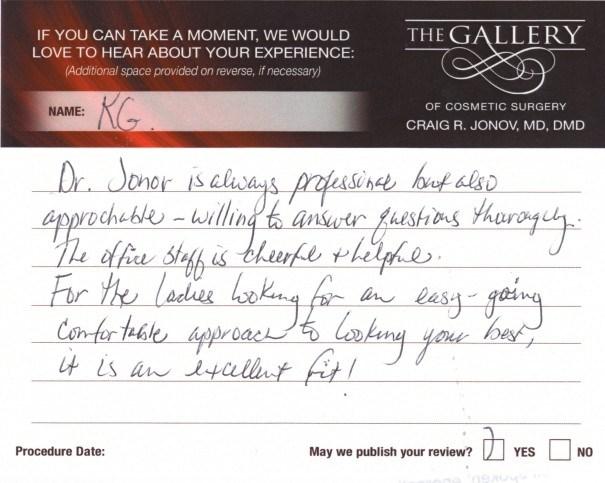 IF YOU CAN TAKE A MOMENT, WE WOULD
LOVE TO HEAR ABOUT YOUR EXPERIENCE:
(Additional space provided on reverse, if necessary)
NAME: KG.
THE GALLERY
OF COSMETIC SURGERY
CRAIG R. JONOV, MD, DMD
Dr. Jonov is always professional but also
approchable - willing to answer questions thoroughly.
The office staff is cheerful + helpful.
For the ladies looking for an easy-going
comfortable approach to looking your best,
it is an excellent fit!
Procedure Date:
May we publish your review? YES NO